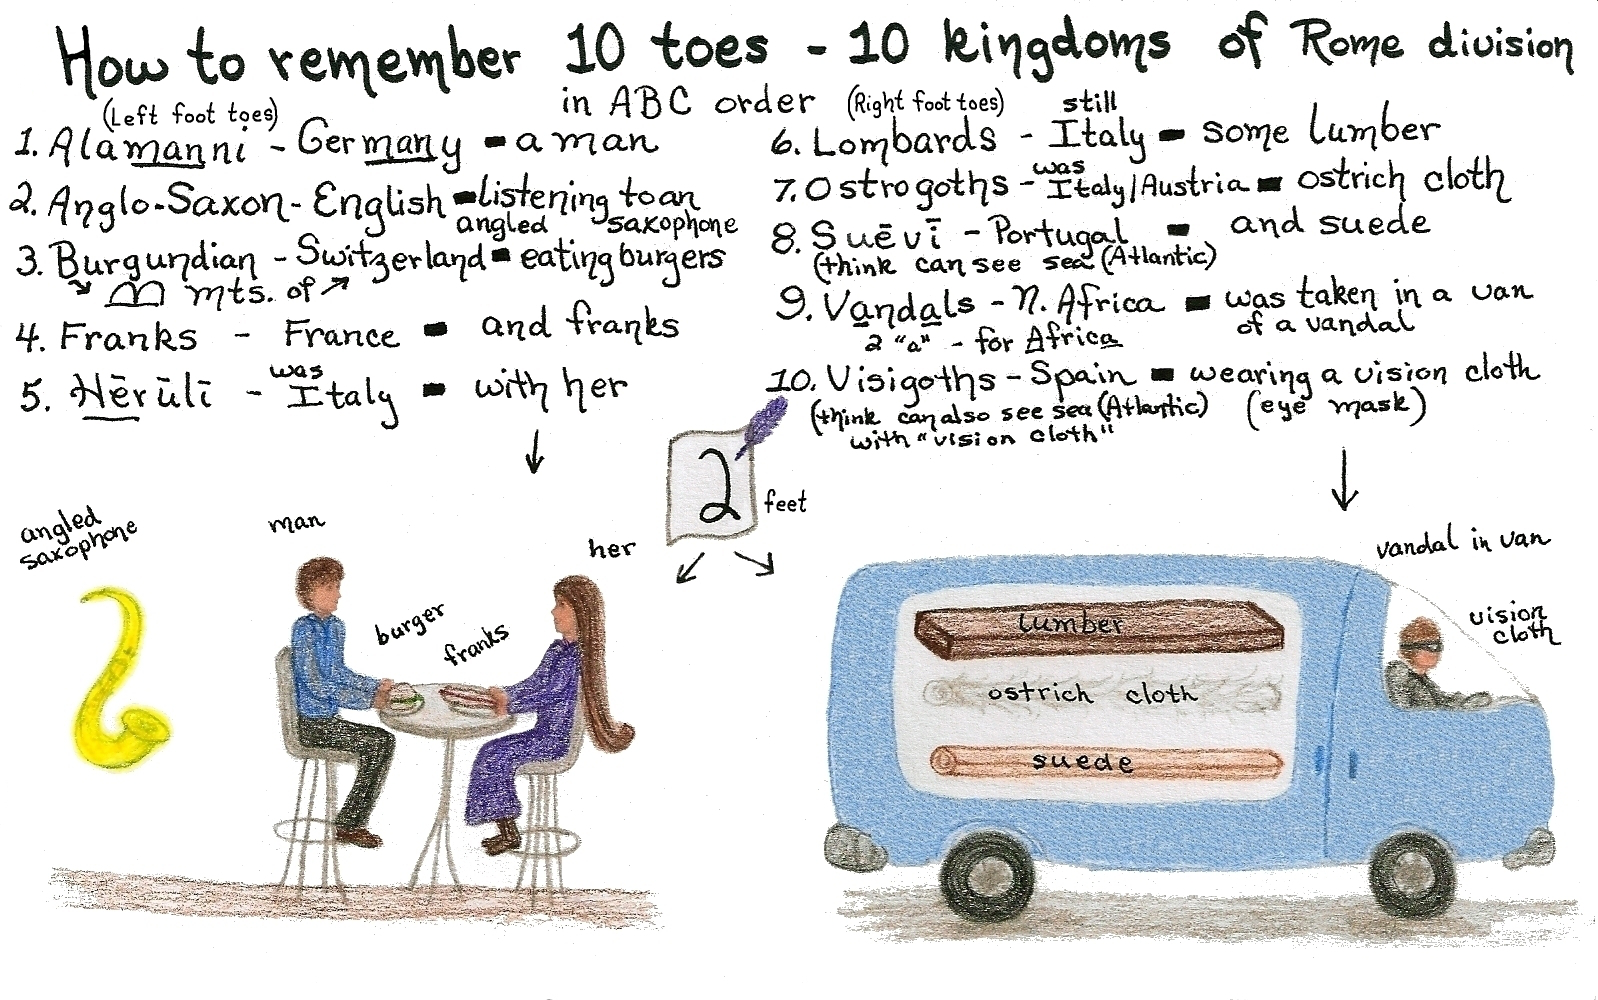 How to remember 10 toes - 10 kingdoms of Rome division
in ABC order
(Left foot toes)
1. Alamanni - Germany = a man
2. Anglo-Saxon - English = listening to an
angled saxophone
3. Burgundian - Switzerland = eating burgers
mts. of
4. Franks - France = and franks
was
5. Hērŭlī - Italy = with her
(Right foot toes)
still
6. Lombards - Italy = some lumber
was
7. Ostrogoths - Italy/Austria = ostrich cloth
8. Suēvī - Portugal = and suede
(think can see sea (Atlantic)
9. Vandals - N. Africa = was taken in a van
of a vandal
2 "a" - for Africa
10. Visigoths - Spain = wearing a vision cloth
(think can also see sea (Atlantic) (eye mask)
with "vision cloth"
2
feet
angled
saxophone
man
her
burger
franks
vandal in van
vision
cloth
lumber
ostrich cloth
suede